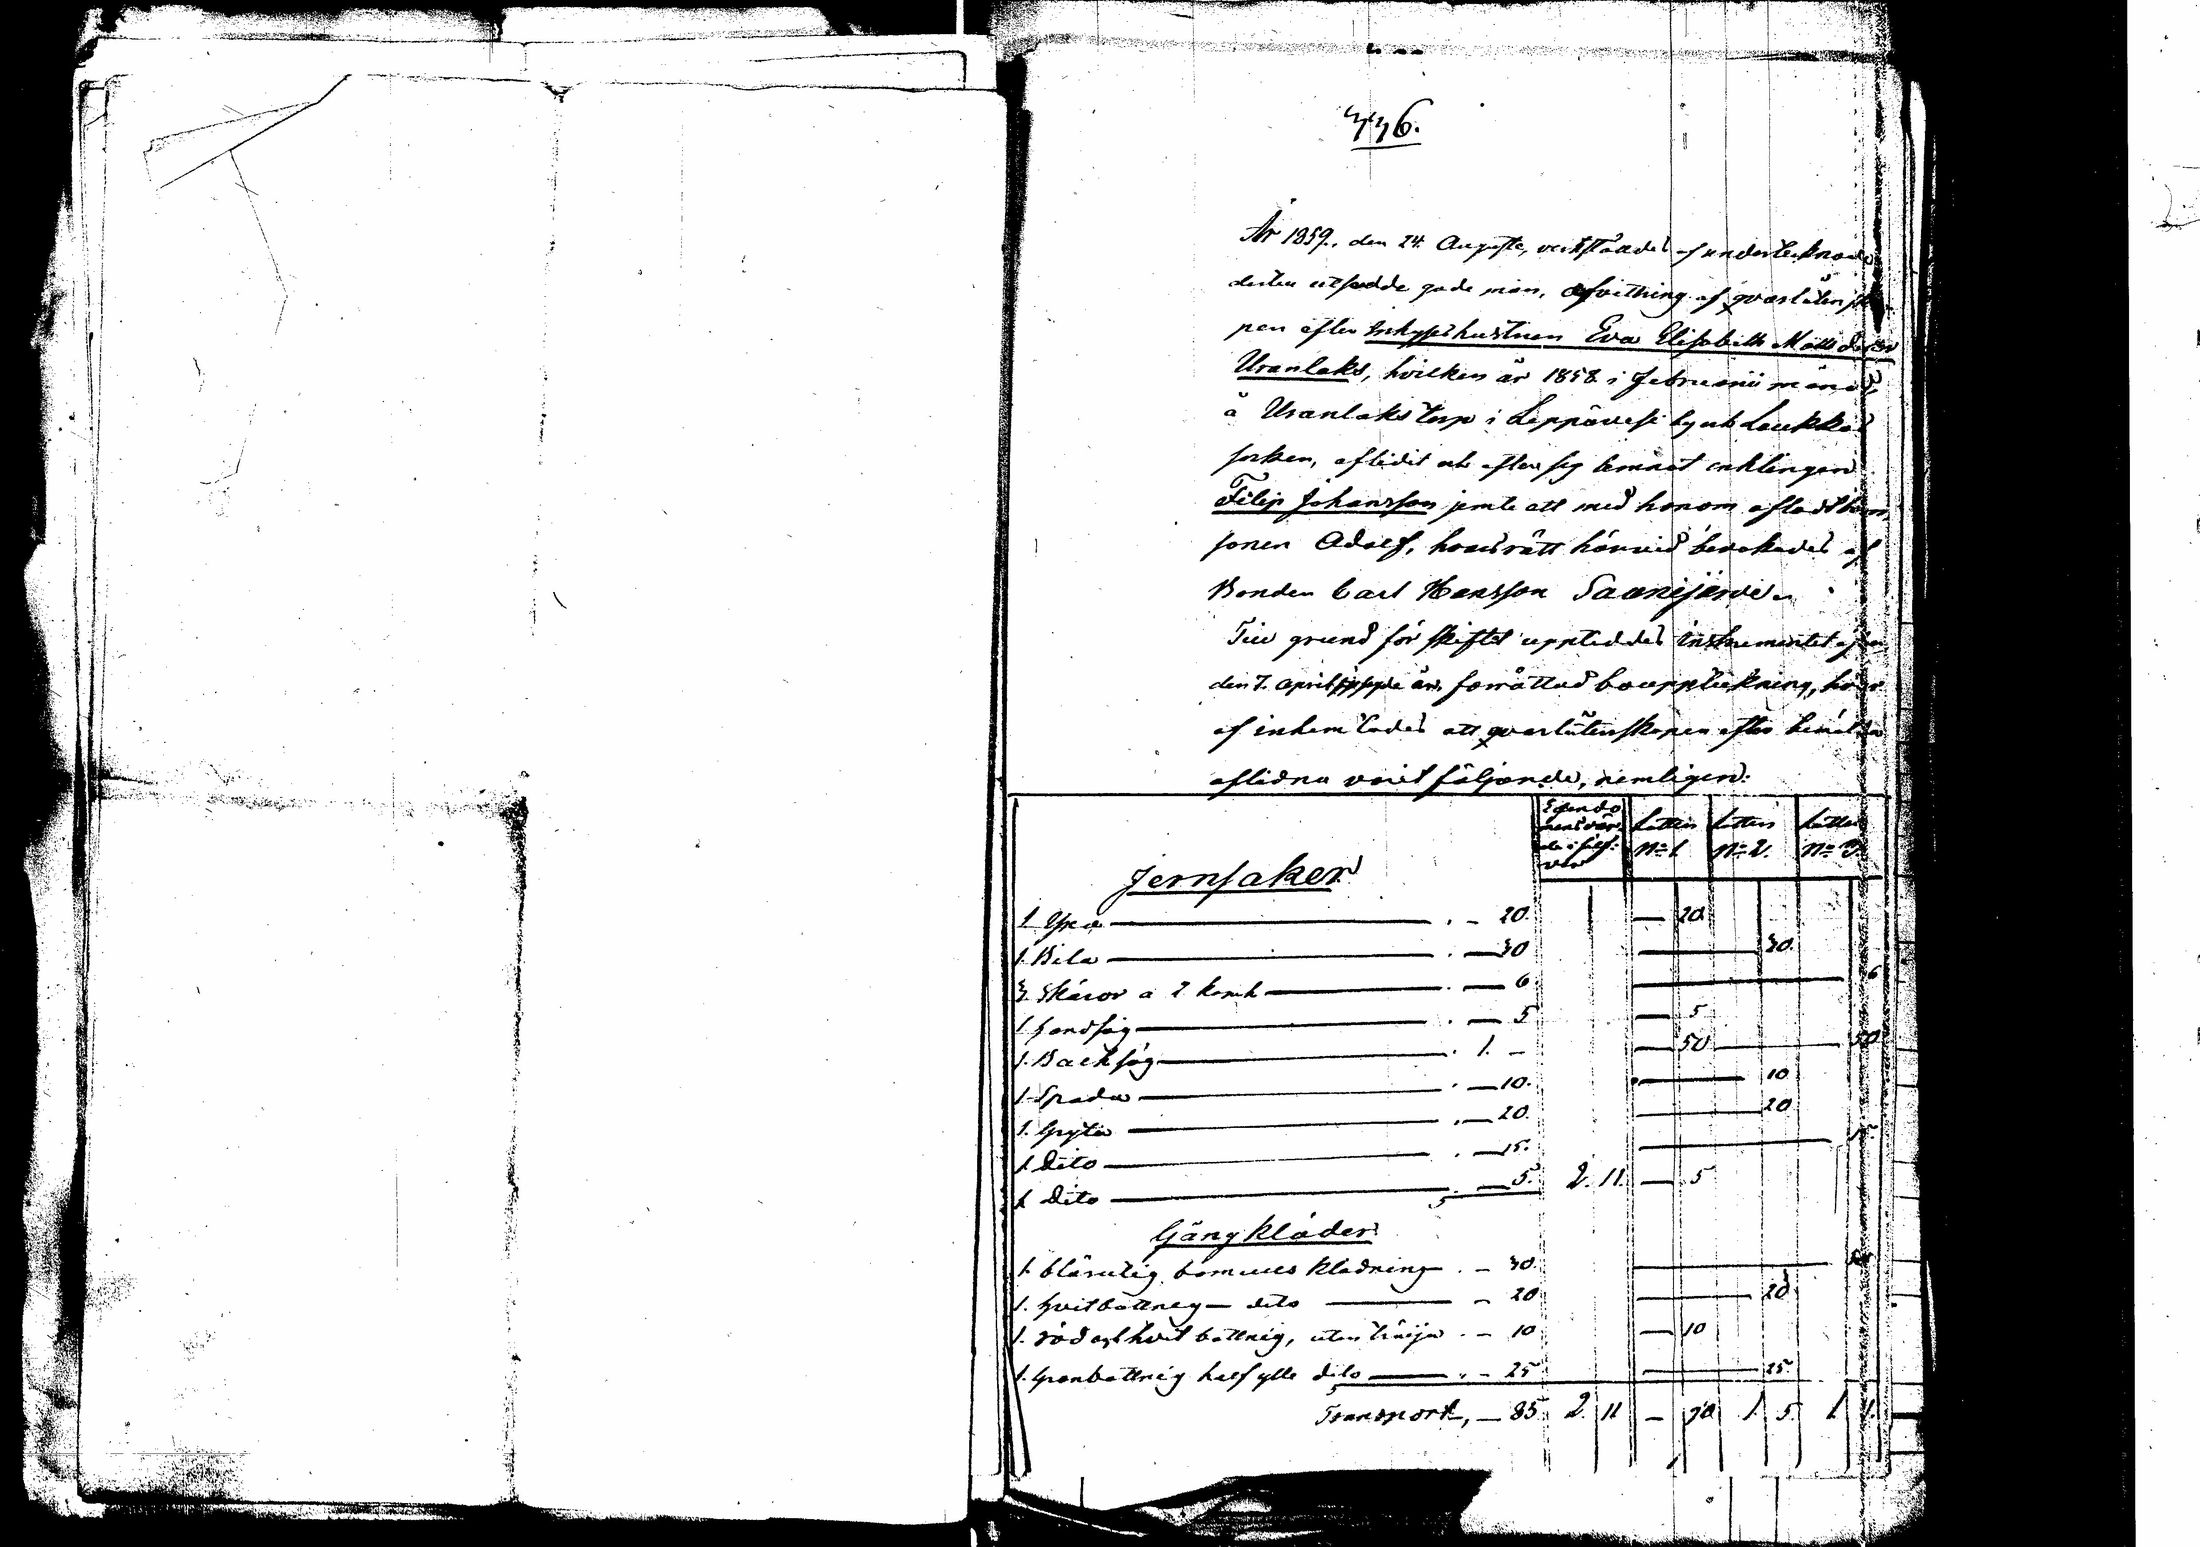 336.
År 1859, den 24 Augusti, verkställdes af undertecknade
dertill utsedde gode män, afvittring af qvarlåtenska
pen efter Inhyseshustrun Eva Elisabeth Matts dotter
Uranlaks, hvilken år 1858 i Februarii månad,
å Uranlaks torp i Leppävesi by och Laukkas
socken, aflidit och efter sig lemnat enklingen
Filip Johansson jemte ett med honom afladt barn,
sonen Adolf, hvars rätt härvid bevakades af
Bonden Carl Hansson Saarijärvi.
Till grund för skiftet uppteddes instrumentet öfver
den 7. April sistl. år förrättad bouppteckning, hvar
af inhemtades att qvarlåtenskapen efter bemälda
aflidna varit följande, nemligen:
Egendo
mens vär
de i silf-
ver Lotten N:o 1. Lotten N:o 2. Lotten N:o 3.
Jernsaker
1. Yxa — 20. — 20.
1. Bila — 30 — 30.
3. Skäror a 2 kop. — 6. — 6
1. Handsåg — 5 — 5
1. Backsåg 1. — — 50 — 50
1. Spada — 10. — 10
1. Gryta — 20. — 20
1. Dito — 15. — 15.
1. Dito — 5. 2. 11. — 5
Gångkläder
1. blårutig bomulls kladning — 30. — 30
1. hvitbottneg dito — 20 — 20
1. röd och hvit bottnig, utan tröija — 10 — 10
1. Grönbottnig half ylle dito — 25 — 25
Transport, — 85 2. 11 — 90 1. 5. 1. 1.